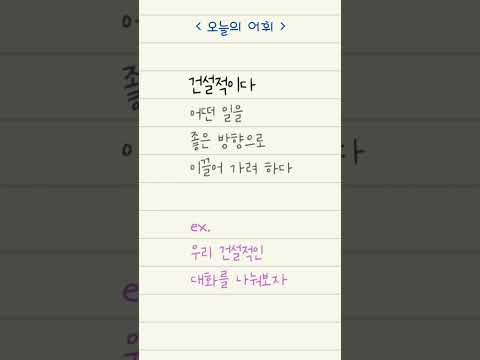 < 오늘의 어휘 >
건설적이다
어떤 일을
좋은 방향으로
이끌어 가려 하다
ex.
우리 건설적인
대화를 나눠보자